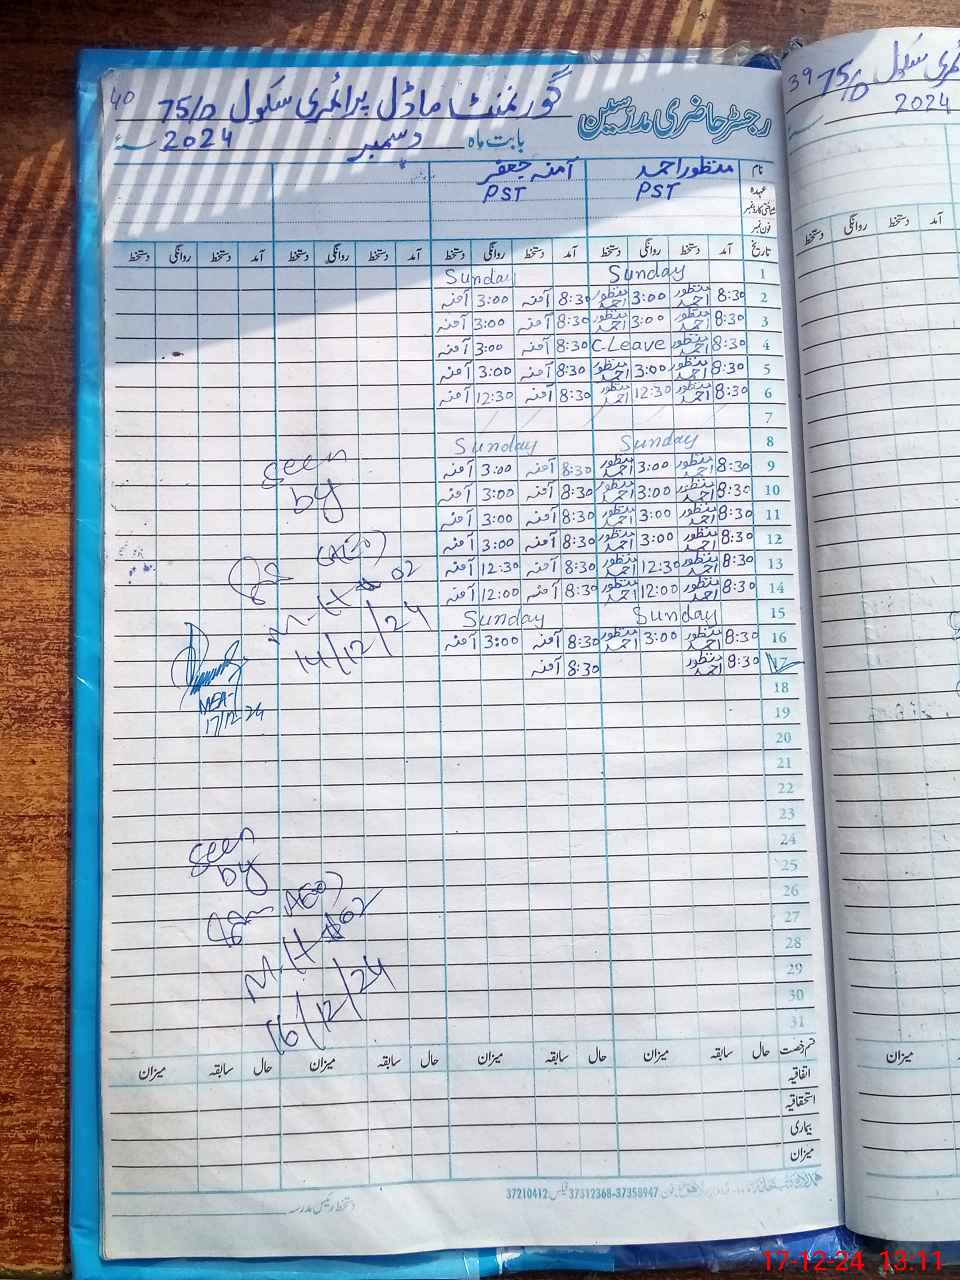 40
رجسٹر حاضری مدرسین گورنمنٹ ماڈل پرائمری سکول 75/D
بابت ماہ دسمبر 2024 سنۂ
نام منظور احمد آمنہ جعفر
عہدہ PST PST
شناختی کارڈ نمبر
فون نمبر
تاریخ آمد دستخط روانگی دستخط آمد دستخط روانگی دستخط آمد دستخط روانگی دستخط آمد دستخط روانگی دستخط
1 Sunday Sunday
2 8:30 منظور احمد 3:00 منظور احمد 8:30 آمنہ 3:00 آمنہ
3 8:30 منظور احمد 3:00 منظور احمد 8:30 آمنہ 3:00 آمنہ
4 8:30 منظور احمد C-Leave 8:30 آمنہ 3:00 آمنہ
5 8:30 منظور احمد 3:00 منظور احمد 8:30 آمنہ 3:00 آمنہ
6 8:30 منظور احمد 12:30 منظور احمد 8:30 آمنہ 12:30 آمنہ
7
8 Sunday Sunday
9 8:30 منظور احمد 3:00 منظور احمد 8:30 آمنہ 3:00 آمنہ
10 8:30 منظور احمد 3:00 منظور احمد 8:30 آمنہ 3:00 آمنہ
11 8:30 منظور احمد 3:00 منظور احمد 8:30 آمنہ 3:00 آمنہ
12 8:30 منظور احمد 3:00 منظور احمد 8:30 آمنہ 3:00 آمنہ
13 8:30 منظور احمد 12:30 منظور احمد 8:30 آمنہ 12:30 آمنہ
14 8:30 منظور احمد 12:00 منظور احمد 8:30 آمنہ 12:00 آمنہ
15 Sunday Sunday
16 8:30 منظور احمد 3:00 منظور احمد 8:30 آمنہ 3:00 آمنہ
17 8:30 منظور احمد 8:30 آمنہ
18
19
20
21
22
23
24
25
26
27
28
29
30
31
seen
by
(AEO)
02
14/12/24
MEA
17/12-24
seen
by
(AEO)
02
16/12/24
قسم رخصت حال سابقہ میزان حال سابقہ میزان حال سابقہ میزان حال سابقہ میزان
اتفاقیہ
استحقاقیہ
بیماری
میزان
37312368-37350947 فیکس 37210412
دستخط رئیس مدرسہ
39 75/D سکول
2024
آمد دستخط روانگی دستخط
میزان
17-12-24 13:11